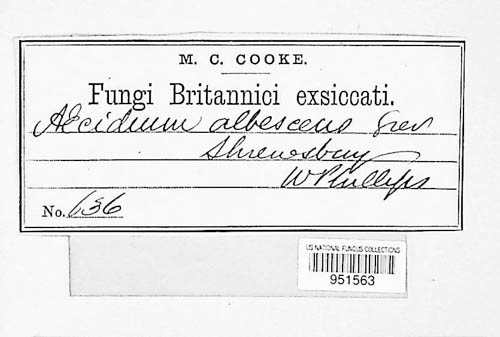 M. C. COOKE.
Fungi Britannici exsiccati.
Æcidium albescens Grev
Shrewsbury
W Phillips
No. 636
US NATIONAL FUNGUS COLLECTIONS
951563